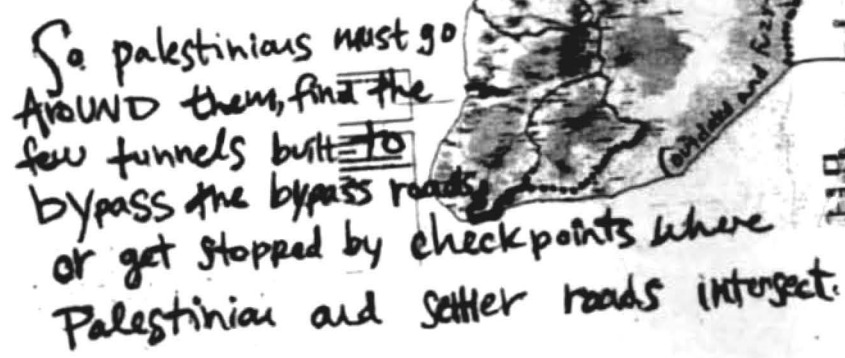 So palestinians must go
AROUND them, find the
few tunnels built to
bypass the bypass roads,
or get stopped by checkpoints where
Palestinian and settler roads intersect.